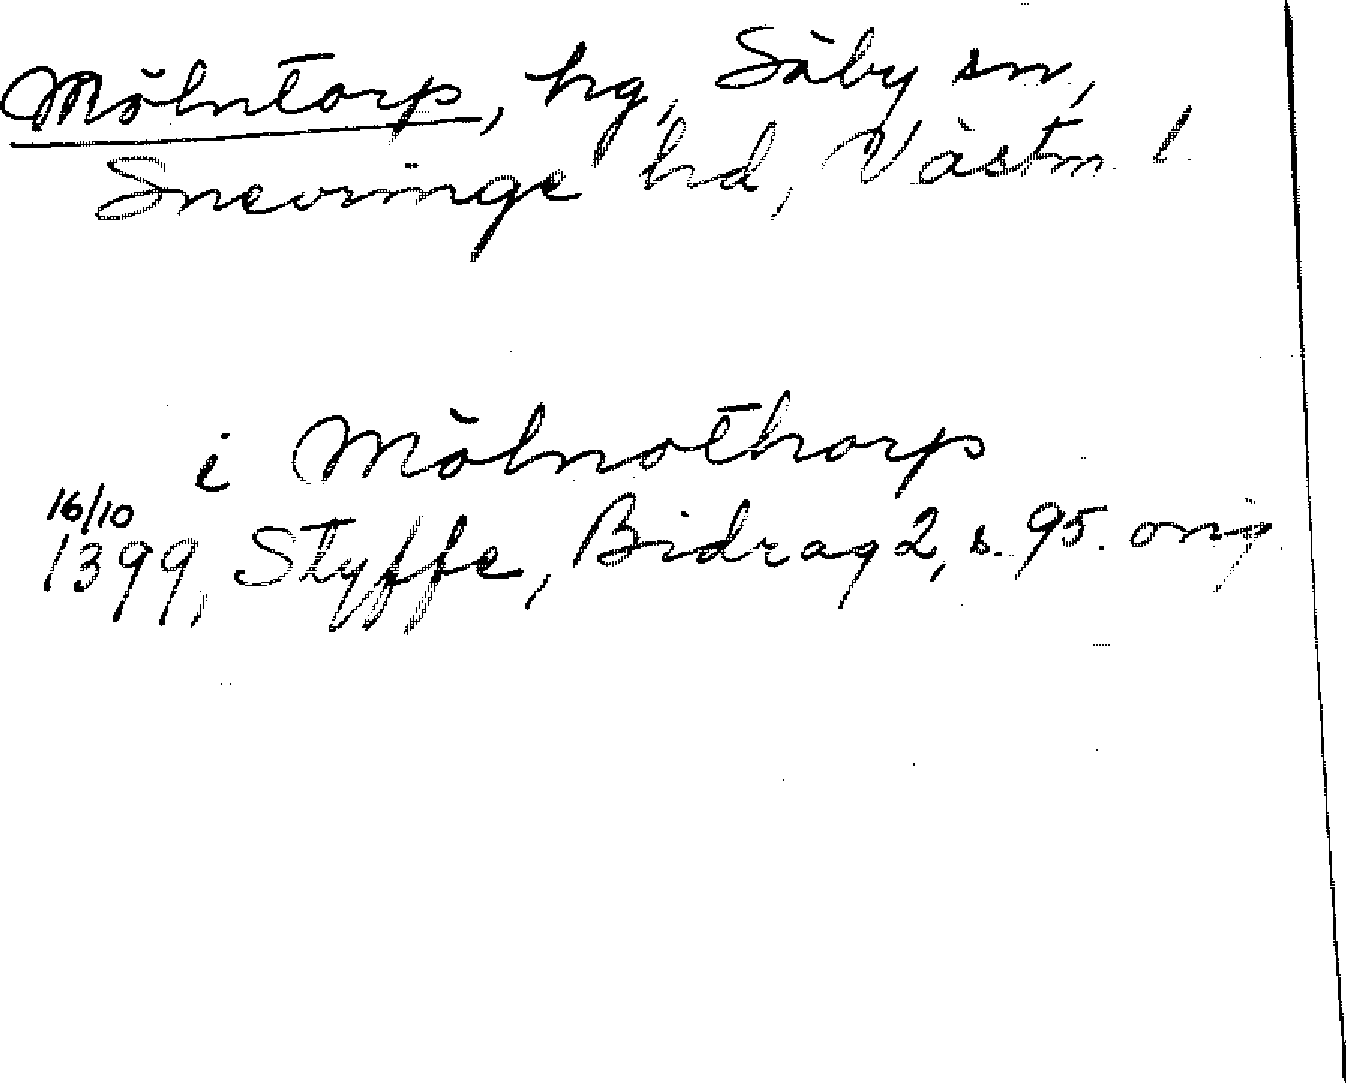 Mölntorp, hg, Säby sn,
Snevringe hd, Västm l
i Mölnothorp
16/10
1399, Styffe, Bidrag 2, s. 95. orig